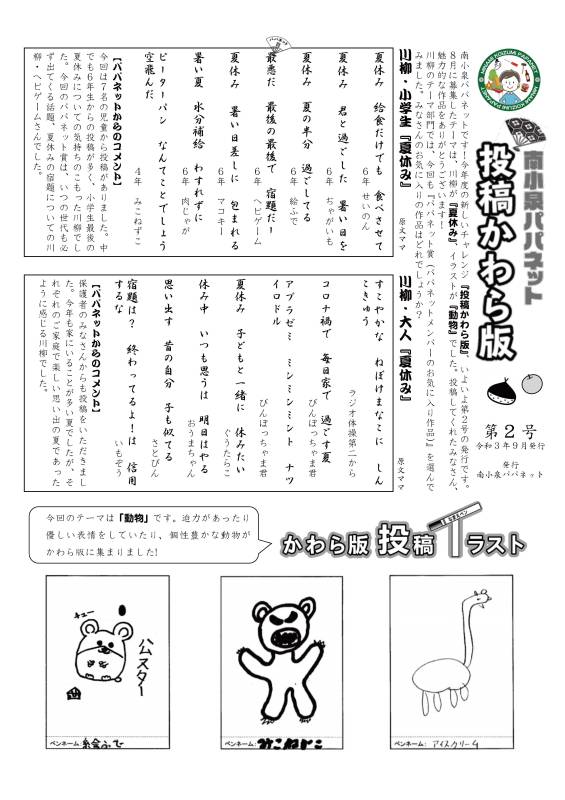 MINAMI KOIZUMI PAPANET
南小泉パパネット
投稿かわら版
第２号
令和３年９月発行
発行
南小泉パパネット
南小泉パパネットです！今年度の新しいチャレンジ『投稿かわら版』、いよいよ第２号の発行です。
８月に募集したテーマは、川柳が『夏休み』、イラストが『動物』でした。投稿してくれたみなさん、
魅力的な作品をありがとうございます！
川柳のテーマ部門では、今回も『パパネット賞（パパネットメンバーのお気に入り作品）』を選んで
みました。みなさんのお気に入りの作品はどれでしょうか？
川柳・小学生『夏休み』
原文ママ
夏休み　給食だけでも　食べさせて
６年　せいのん
夏休み　君と過ごした　暑い日を
６年　ちゃがいも
夏休み　夏の半分　過ごしてる
６年　絵ふで
パパネット
最悪だ　最後の最後で　宿題だ！
６年　ヘビゲーム
夏休み　暑い日差しに　包まれる
６年　マコキー
暑い夏　水分補給　わすれずに
６年　肉じゃが
ピーターパン　なんてことでしょう
空飛んだ
４年　みこねずこ
【パパネットからのコメント】
今回は７名の児童から投稿がありました。中
でも６年生からの投稿が多く、小学生最後の
夏休みについての気持ちのこもった川柳でし
た。今回のパパネット賞は、いつの世代も必
ず出てくる話題、夏休みの宿題についての川
柳・ヘビゲームさんでした。
川柳・大人『夏休み』
原文ママ
すこやかな　ねぼけまなこに　しん
こきゅう
ラジオ体操第二から
コロナ禍で　毎日家で　過ごす夏
びんぼっちゃま君
アブラゼミ　ミンミンミント　ナツ
イロドル
びんぼっちゃま君
夏休み　子どもと一緒に　休みたい
ぐうたらこ
休み中　いつも思うは　明日はやる
おうまちゃん
思い出す　昔の自分　子も似てる
さとびん
宿題は？　終わってるよ！は　信用
するな
いもぞう
【パパネットからのコメント】
保護者のみなさんからも投稿をいただきまし
た。今年も家にいることが多い夏でしたが、そ
れぞれのご家庭で楽しい思い出の夏であった
ように感じる川柳でした。
今回のテーマは「動物」です。迫力があったり
優しい表情をしていたり、個性豊かな動物が
かわら版に集まりました！
かわら版 投稿イラスト
チュー
公スター
ペンネーム：絵ふで
ペンネーム：みこねずこ
ペンネーム：アイスクリーム